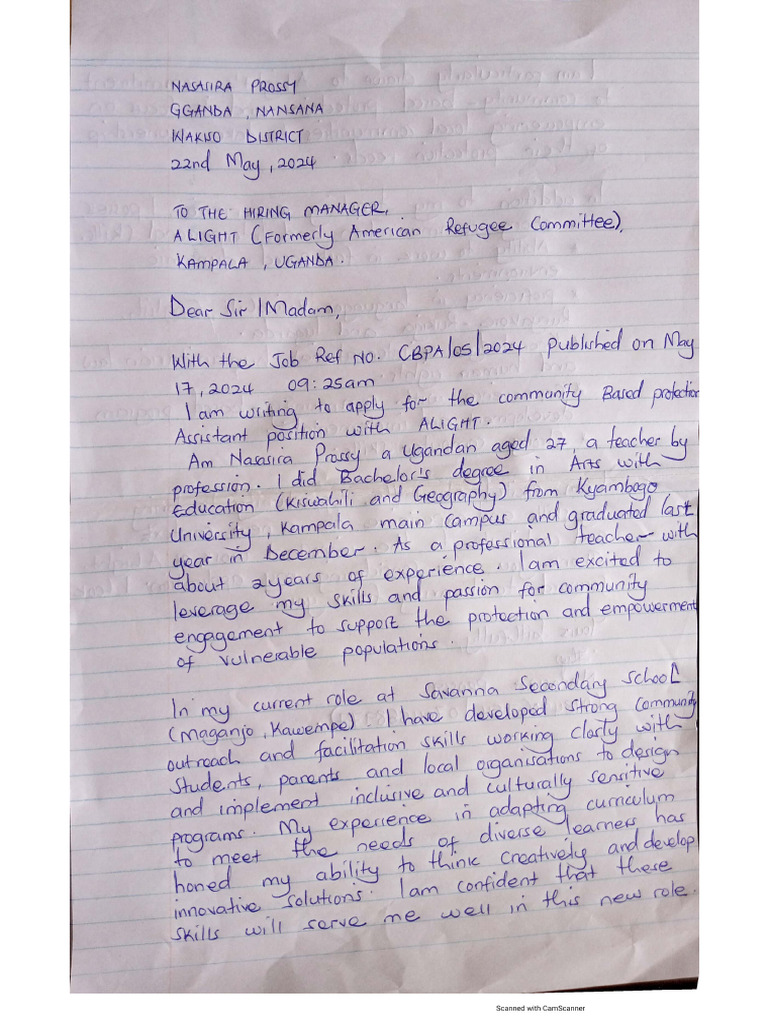 NASASIRA PROSSY
GGANDA, NANSANA
WAKISO DISTRICT
22nd May, 2024
TO THE HIRING MANAGER,
ALIGHT (Formerly American Refugee Committee),
KAMPALA, UGANDA.
Dear Sir/Madam,
With the Job Ref No. CBPA/05/2024 published on May
17, 2024 09:25am
I am writing to apply for the community Based protection
Assistant position with ALIGHT.
Am Nasasira Prossy a Ugandan aged 27, a teacher by
profession. I did Bachelor's degree in Arts with
Education (Kiswahili and Geography) from Kyambogo
University, Kampala main campus and graduated last
year in December. As a professional teacher with
about 2years of experience. I am excited to
leverage my skills and passion for community
engagement to support the protection and empowerment
of vulnerable populations.
In my current role at Savanna Secondary School
(Maganjo, Kawempe) I have developed strong community
outreach and facilitation skills working clasly with
students, parents and local organisations to design
and implement inclusive and culturally sensitive
programs. My experience in adapting curriculum
to meet the needs of diverse learners has
honed my ability to think creatively and develop
innovative solutions. I am confident that these
skills will serve me well in this new role.
Scanned with CamScanner